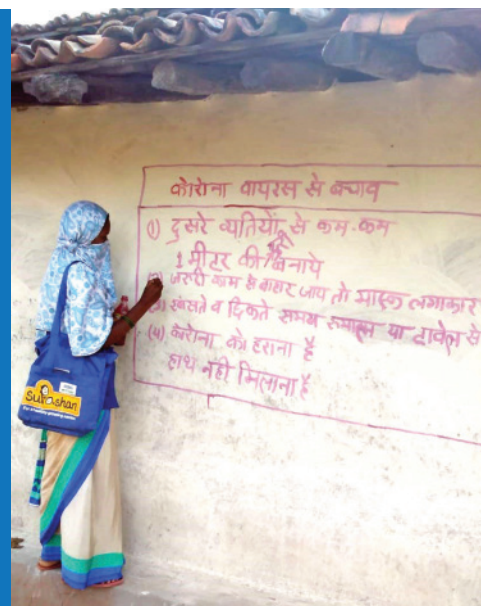 कोरोना वायरस से बचाव
(1) दुसरे व्यतियों से कम-कम
1 मीटर की दूरी बनाये
(2) जरुरी काम से बाहर जाए तो मास्क लगाकार
(3) खासते व छिकते समय रुमाल या टावेल से
(4) कोरोना को हराना है
हाथ नही मिलाना है
Suposhan